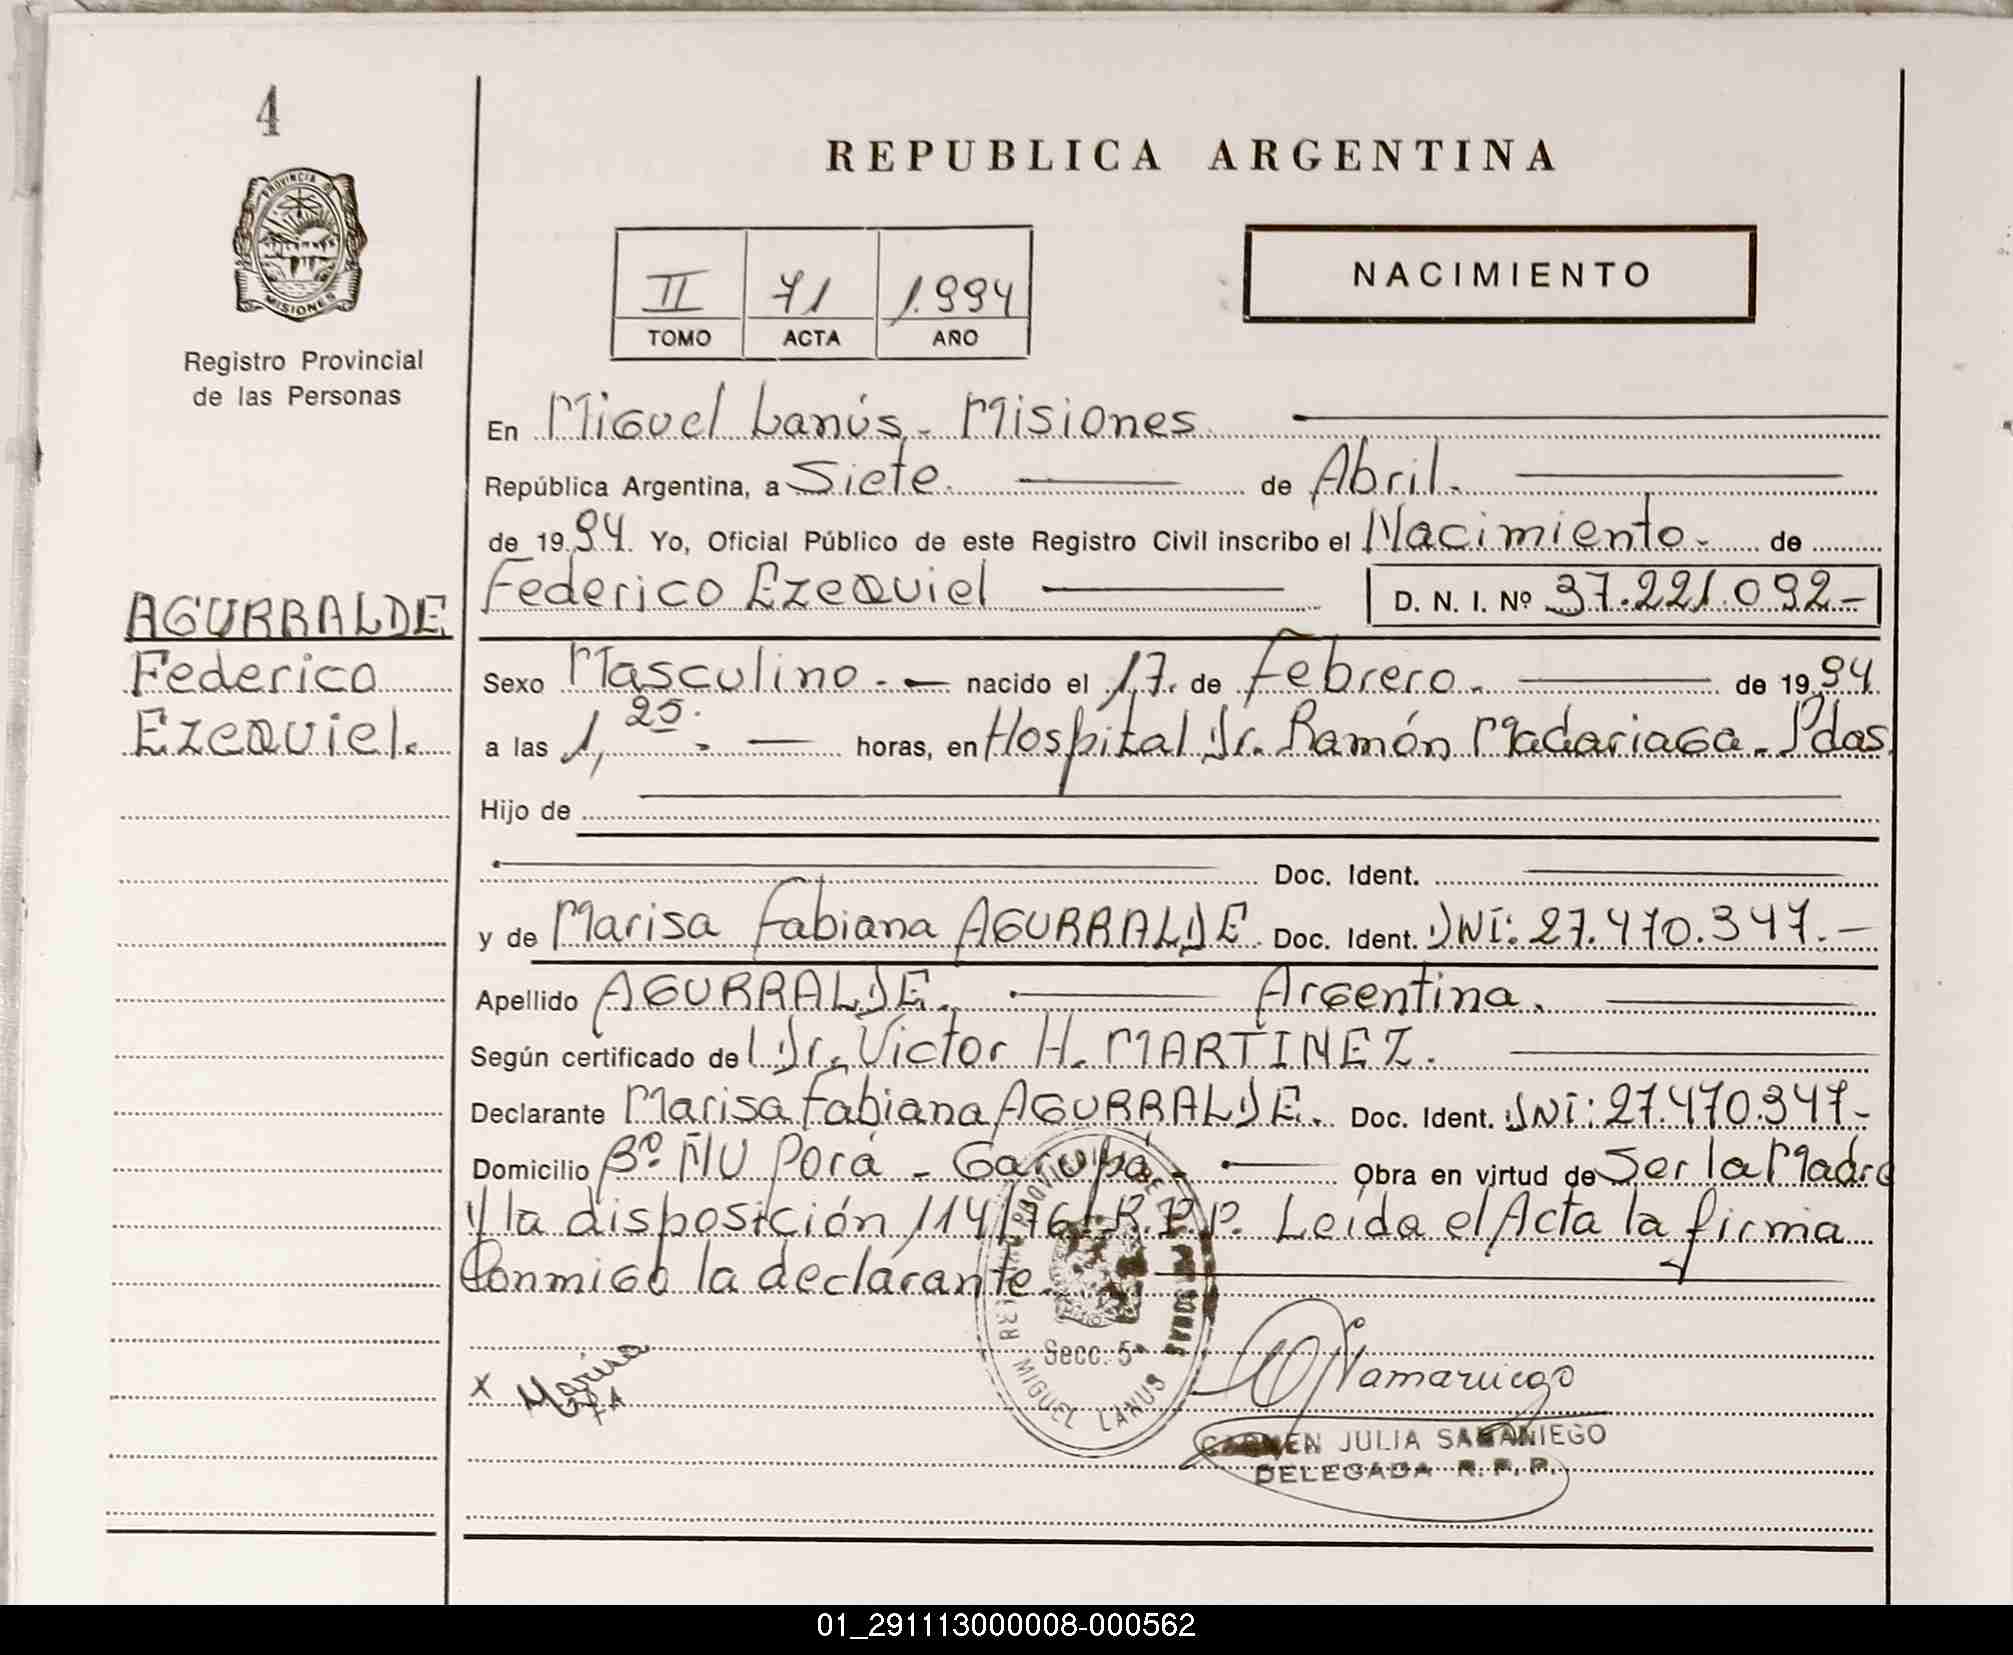 4
PROVINCIA DE
MISIONES
Registro Provincial
de las Personas
REPUBLICA ARGENTINA
II 71 1.994
TOMO ACTA AÑO
NACIMIENTO
En Miguel Lanús - Misiones
República Argentina, a Siete. de Abril.
de 1994. Yo, Oficial Público de este Registro Civil inscribo el Nacimiento - de
Federico Ezequiel D. N. I. Nº 37.221.092-
AGURRALDE
Federico
Ezequiel.
Sexo Masculino. - nacido el 17. de Febrero. de 1994
a las 1,25. - horas, en Hospital Dr. Ramón Madariaga - Pdas.
Hijo de
Doc. Ident.
y de Marisa Fabiana AGURRALDE Doc. Ident. DNI: 27.470.347.-
Apellido AGURRALDE. Argentina.
Según certificado de Dr. Victor H. MARTINEZ.
Declarante Marisa Fabiana AGURRALDE. Doc. Ident. DNI: 27.470.347-
Domicilio Bº. ÑU Porá - Garupá - Obra en virtud de Ser la Madre
y la disposición 114/76/R.P.P. Leída el Acta la firma
Conmigo la declarante.
Secc. 5ª
MIGUEL LANUS
X Marisa
CARMEN JULIA SAMANIEGO
DELEGADA R. P. P.
01_291113000008-000562